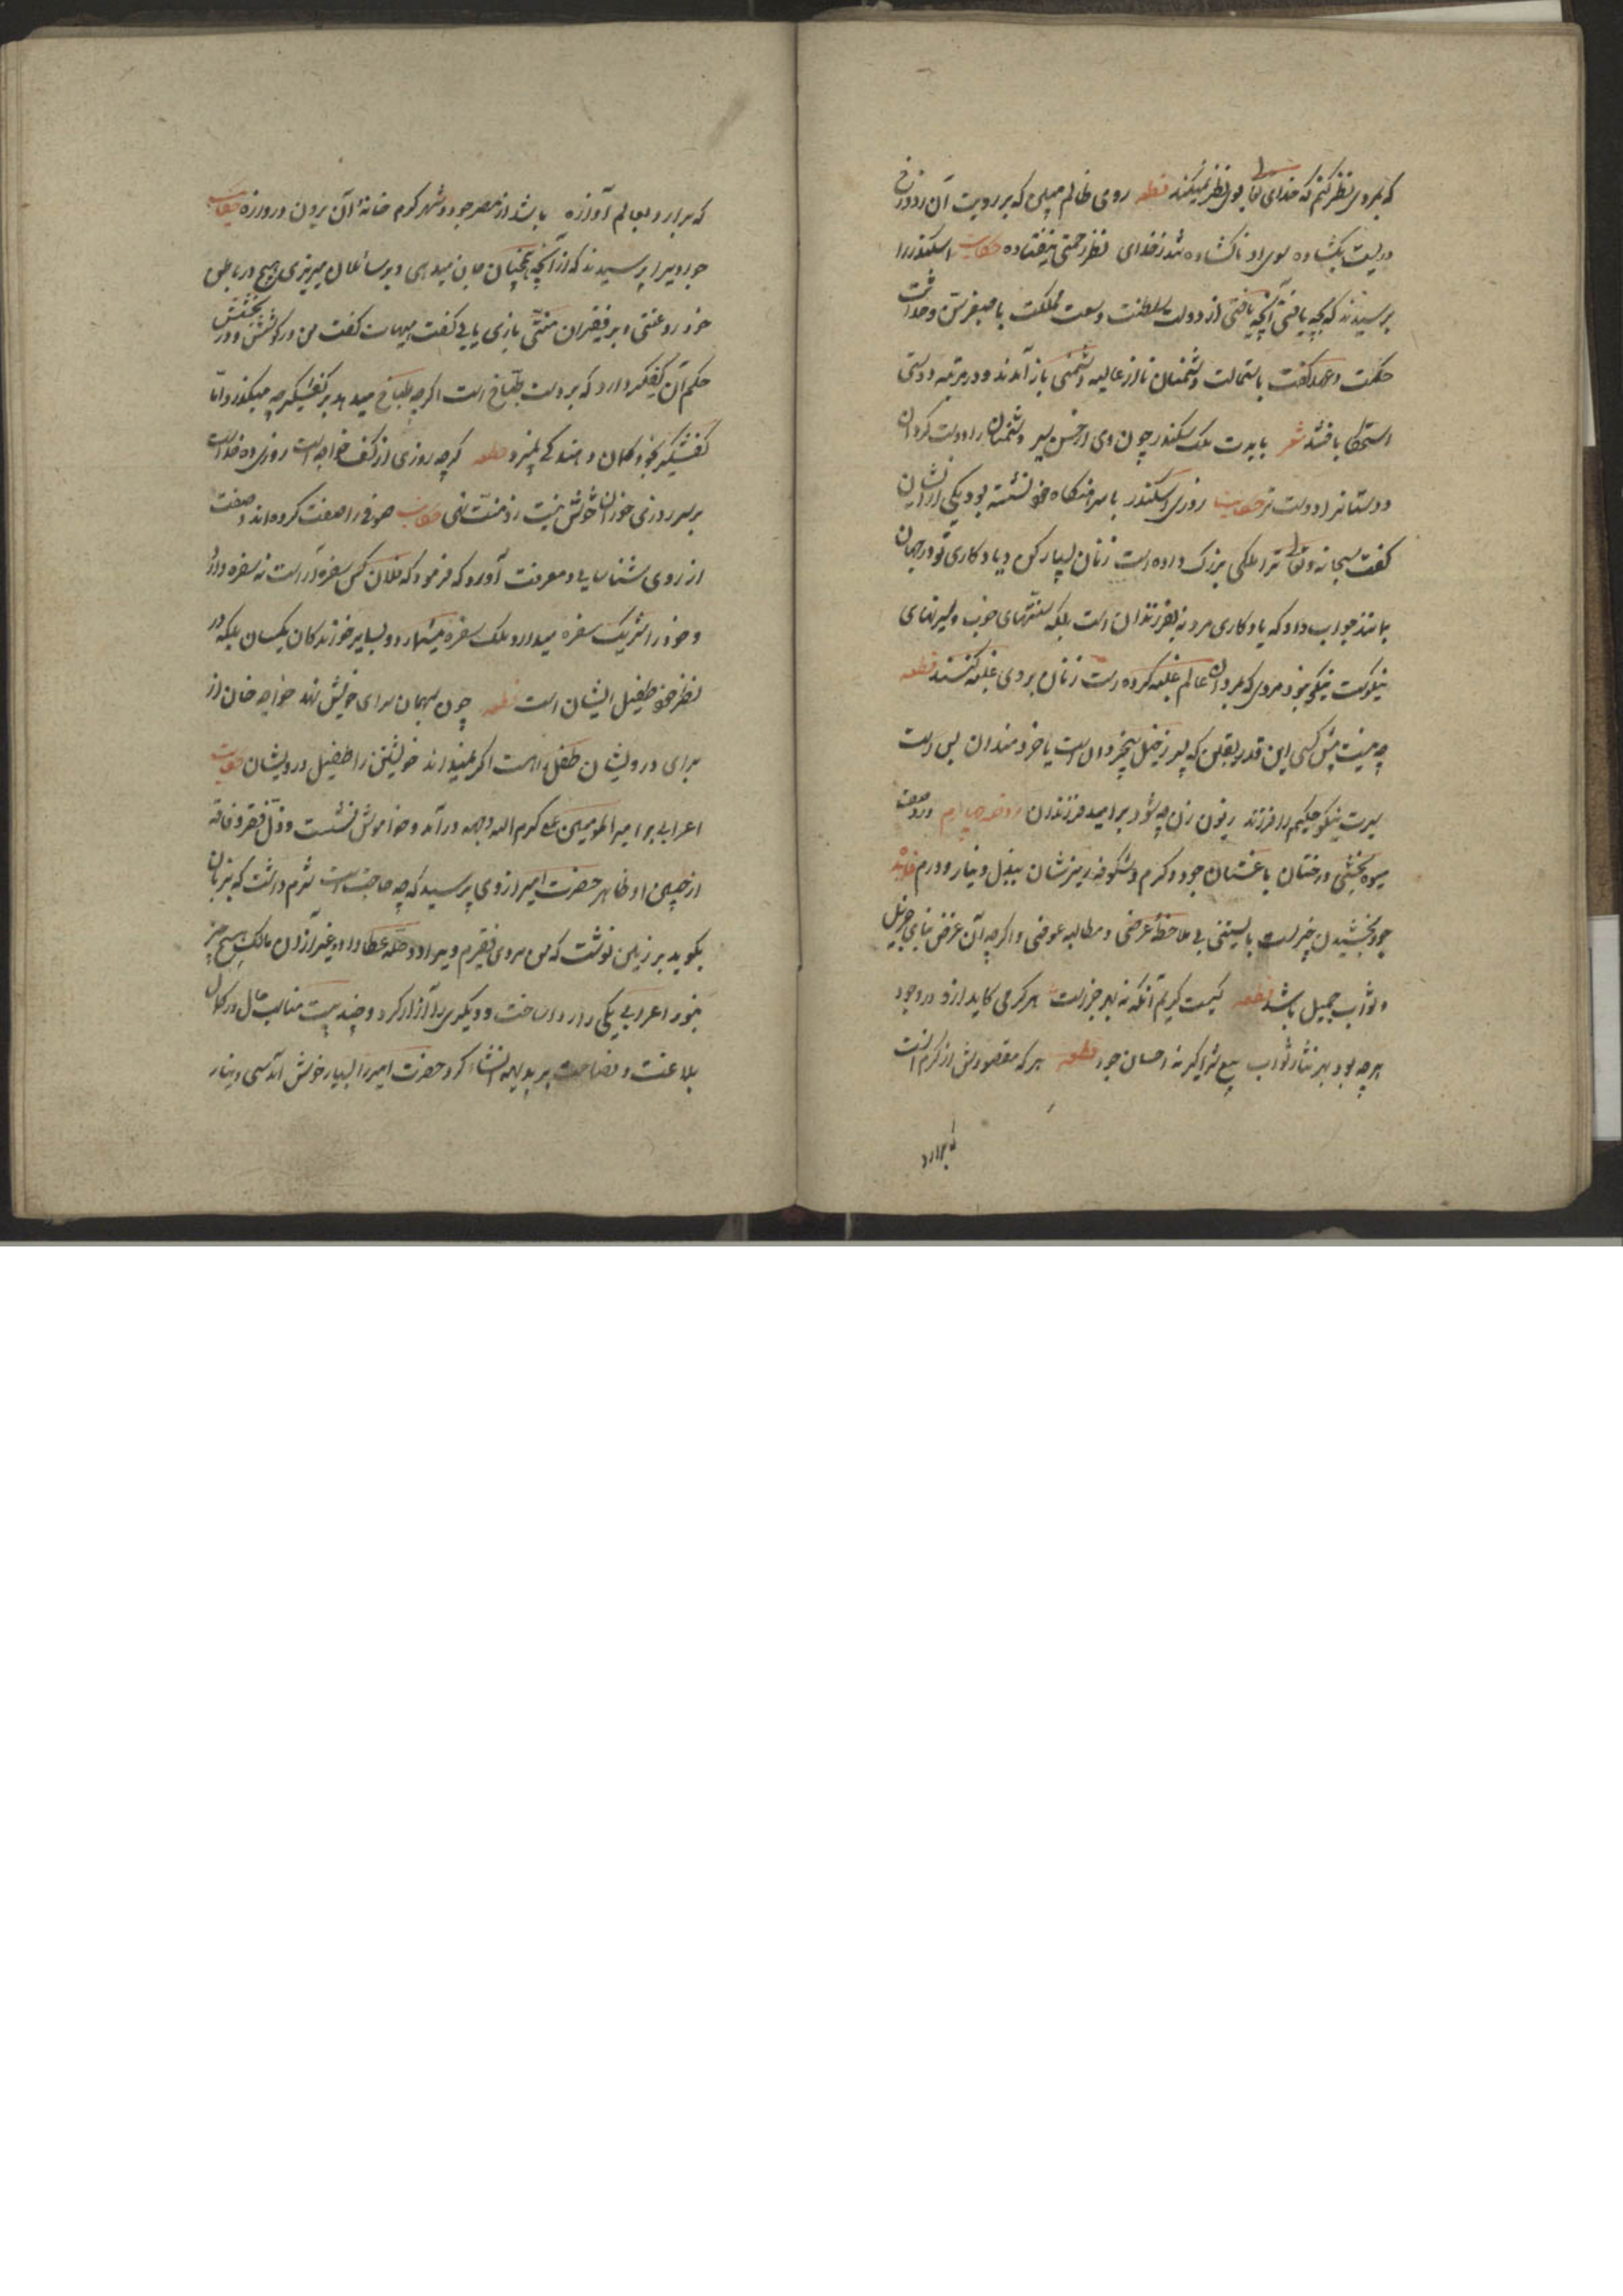 که بمردی نظر کنم که خدای تعالی بوی نظر نمیکند قطعه روی ظالم مبین که بر رویت آن در دوزخ
دریست بگشاده سوی او ناگشاده شد ز خدای نظر رحمتی نیفتاده حکایت اسکندر را
پرسیدند که بچه یافتی آنچه یافتی از دولت و سلطنت و سعت مملکت با صغر سن و حداثت
گفت باستمالت دشمنان تا از غایله دشمنی باز آمدند و در مرتبه دوستی
استحکام یافتند شعر بایدت ملک سکندر چون وی از حسن سیر دشمنان را دوست گردان
دوستانرا دوست تر حکایت روزی اسکندر با سرهنگان خود نشسته بود یکی از ایشان
گفت سبحانه و تعالی ترا ملکی بزرگ داده است زنان بسیار کن و یادگاری تو در جهان
بماند جواب داد که یادگاری مرد نه فرزندان است بلکه سنتهای خوب و سیرتهای
نیکوست نیکو نبود مردی که بر مردان عالم غلبه کرده است زنان بر وی غلبه کنند قطعه
چو نیست پیش کسی این قدر یقین که پسر ز خیل بیخردان است یا خردمندان بس است
سیرت نیکو حکیم را فرزند زبون زن چه شود بر امید فرزندان روضه چهارم در وصف
میوه بخشی درختان باغستان جود و کرم و شکوفه ریزیشان ببذل دینار و درم فایده
جود بخشیدن چیزیست بایستنی بی ملاحظه غرضی و مطالبه عوضی و اگرچه آن غرض ثنای جزیل
و ثواب جمیل باشد قطعه کیست کریم آنکه نه بهر جزاست هر کرمی کاید ازو در وجود
هر چه بود بهر ثنا و ثواب بیع شرا گیر نه احسان جود قطعه هر که مقصودش از کرم آنست
که برارد
که برارد بعالم آوازه باشد از مصر جود و شهر کرم خانهٔ آن برون دروازه حکایت
جوادیرا پرسیدند که از آنچه بمحتاجان میدهی و بر سائلان میریزی هیچ در باطن
خود رعونتی و بر فقیران منتی بازمی یابی گفت هیهات گفت من در کوشش و در بخشش
حکم آن کفگیر دارد که بر دست طباخ است اگرچه طباخ میدهد بر کفگیر چه میگذرد اما
کفگیر بخود گمان دهندگی نمیبرد قطعه گرچه روزی از کف خواجه است روزی ده خداست
بر سر روزی خوران خوش نیست زو منت نهی حکایت صوفی را صفت کرده‌اند وصفت
از روی شناسایی و معرفت آورد که فرمود که فلان کس سفره آراست نه سفره دار
و خود را شریک سفره میدارد و ملک سفره میشمارد و با سایر خورندگان یکسان بلکه در
نظر خود طفیل ایشان است قطعه چون مهمان سرای خویش نهد خواجه خوان از
برای درویشان طفل راهست اگر نمیداند خویشتن را طفیل درویشان حکایت
اعرابی بر امیر المؤمنین علی کرم الله وجهه درآمد و خاموش نشست و ذل فقر و فاقه
از جبین او ظاهر حضرت امیر از وی پرسید که چه حاجت است شرم داشت که بزبان
بگوید بر زمین نوشت که من مردی فقیرم ویرا دو حله عطا داد و غیر از آن مالک هیچ چیز
نبود اعرابی یکی را ردا ساخت و دیگری را ازار کرد و چند بیت مناسب حال در کمال
بلاغت و فصاحت بر بدیهه انشاء کرد حضرت امیر را بسیار خوش آمد سی دینار